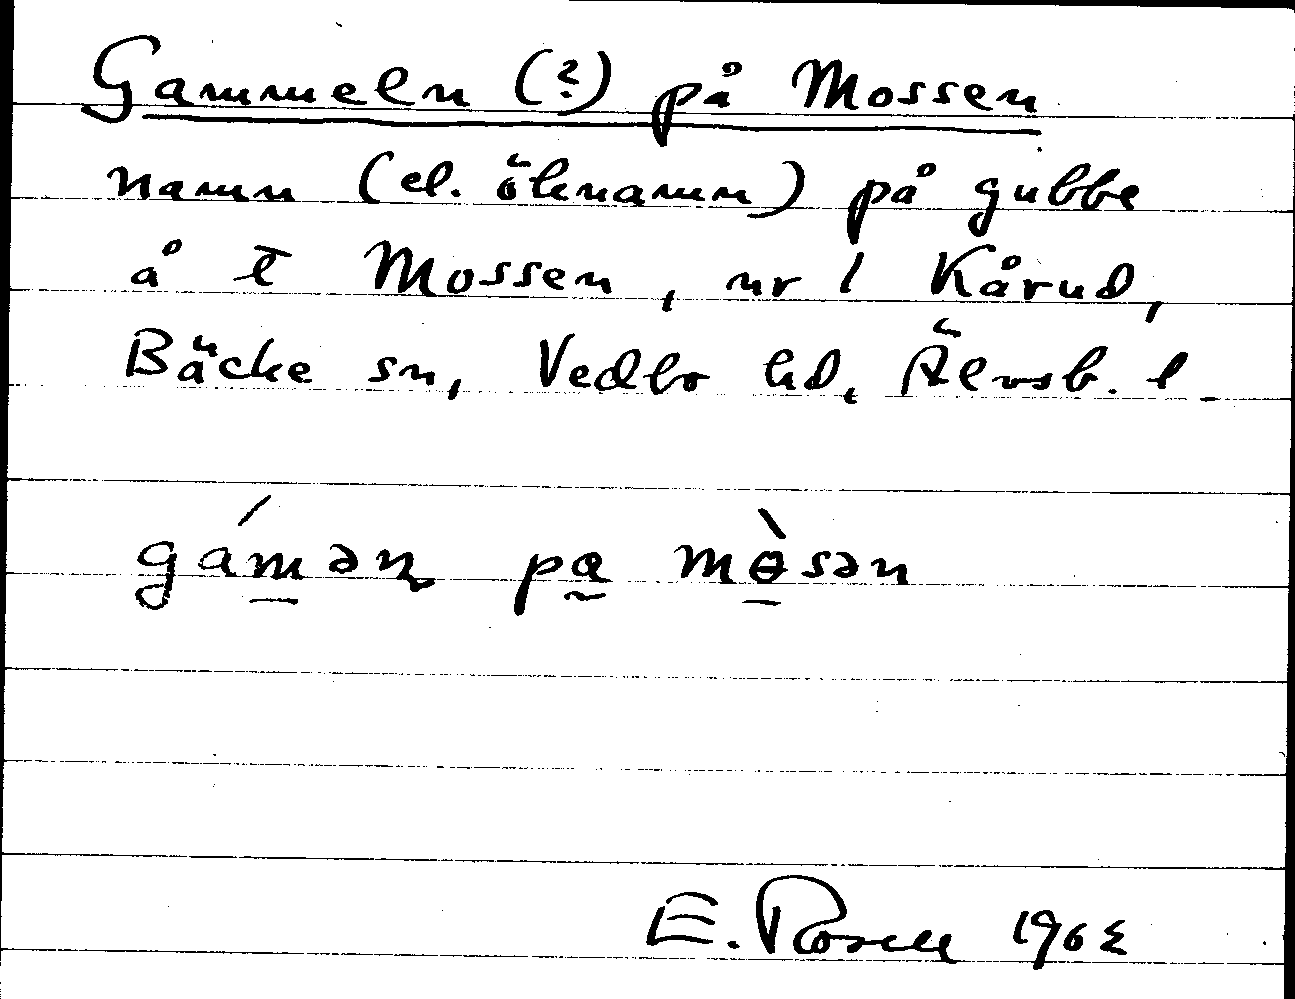 Gammeln (?) på Mossen
namn (el. öknamn) på gubbe
å t Mossen, nr 1 Kårud,
Bäcke sn, Vedbo hd, Älvsb. l.
gámən pa mòsən
E. Rosell 1962